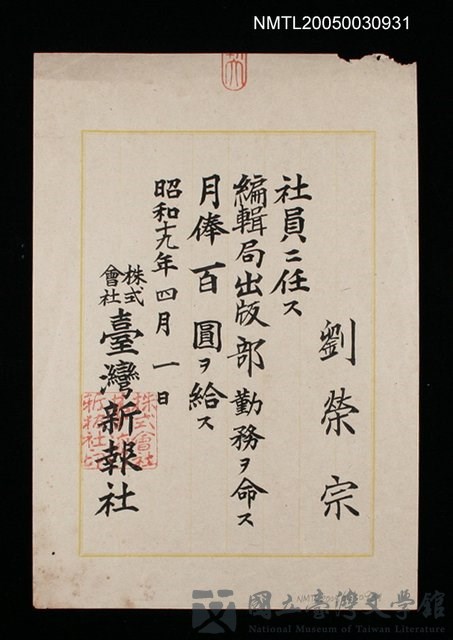 NMTL20050030931
劉榮宗
社員ニ任ス
編輯局出版部勤務ヲ命ス
月俸百圓ヲ給ス
昭和十九年四月一日
株式會社臺灣新報社
國立臺灣文學館
National Museum of Taiwan Literature